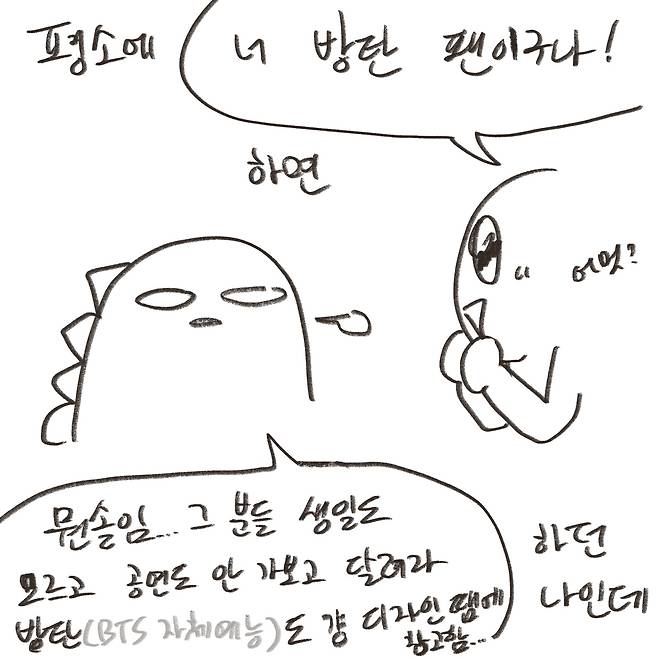 평소에 너 방탄 팬이구나!
하면
어멋?
뭔솔임... 그 분들 생일도
모르고 공연도 안 가보고 달려라
방탄(BTS 자체예능)도 걍 디자인 땜에
참고함...
하던
나인데